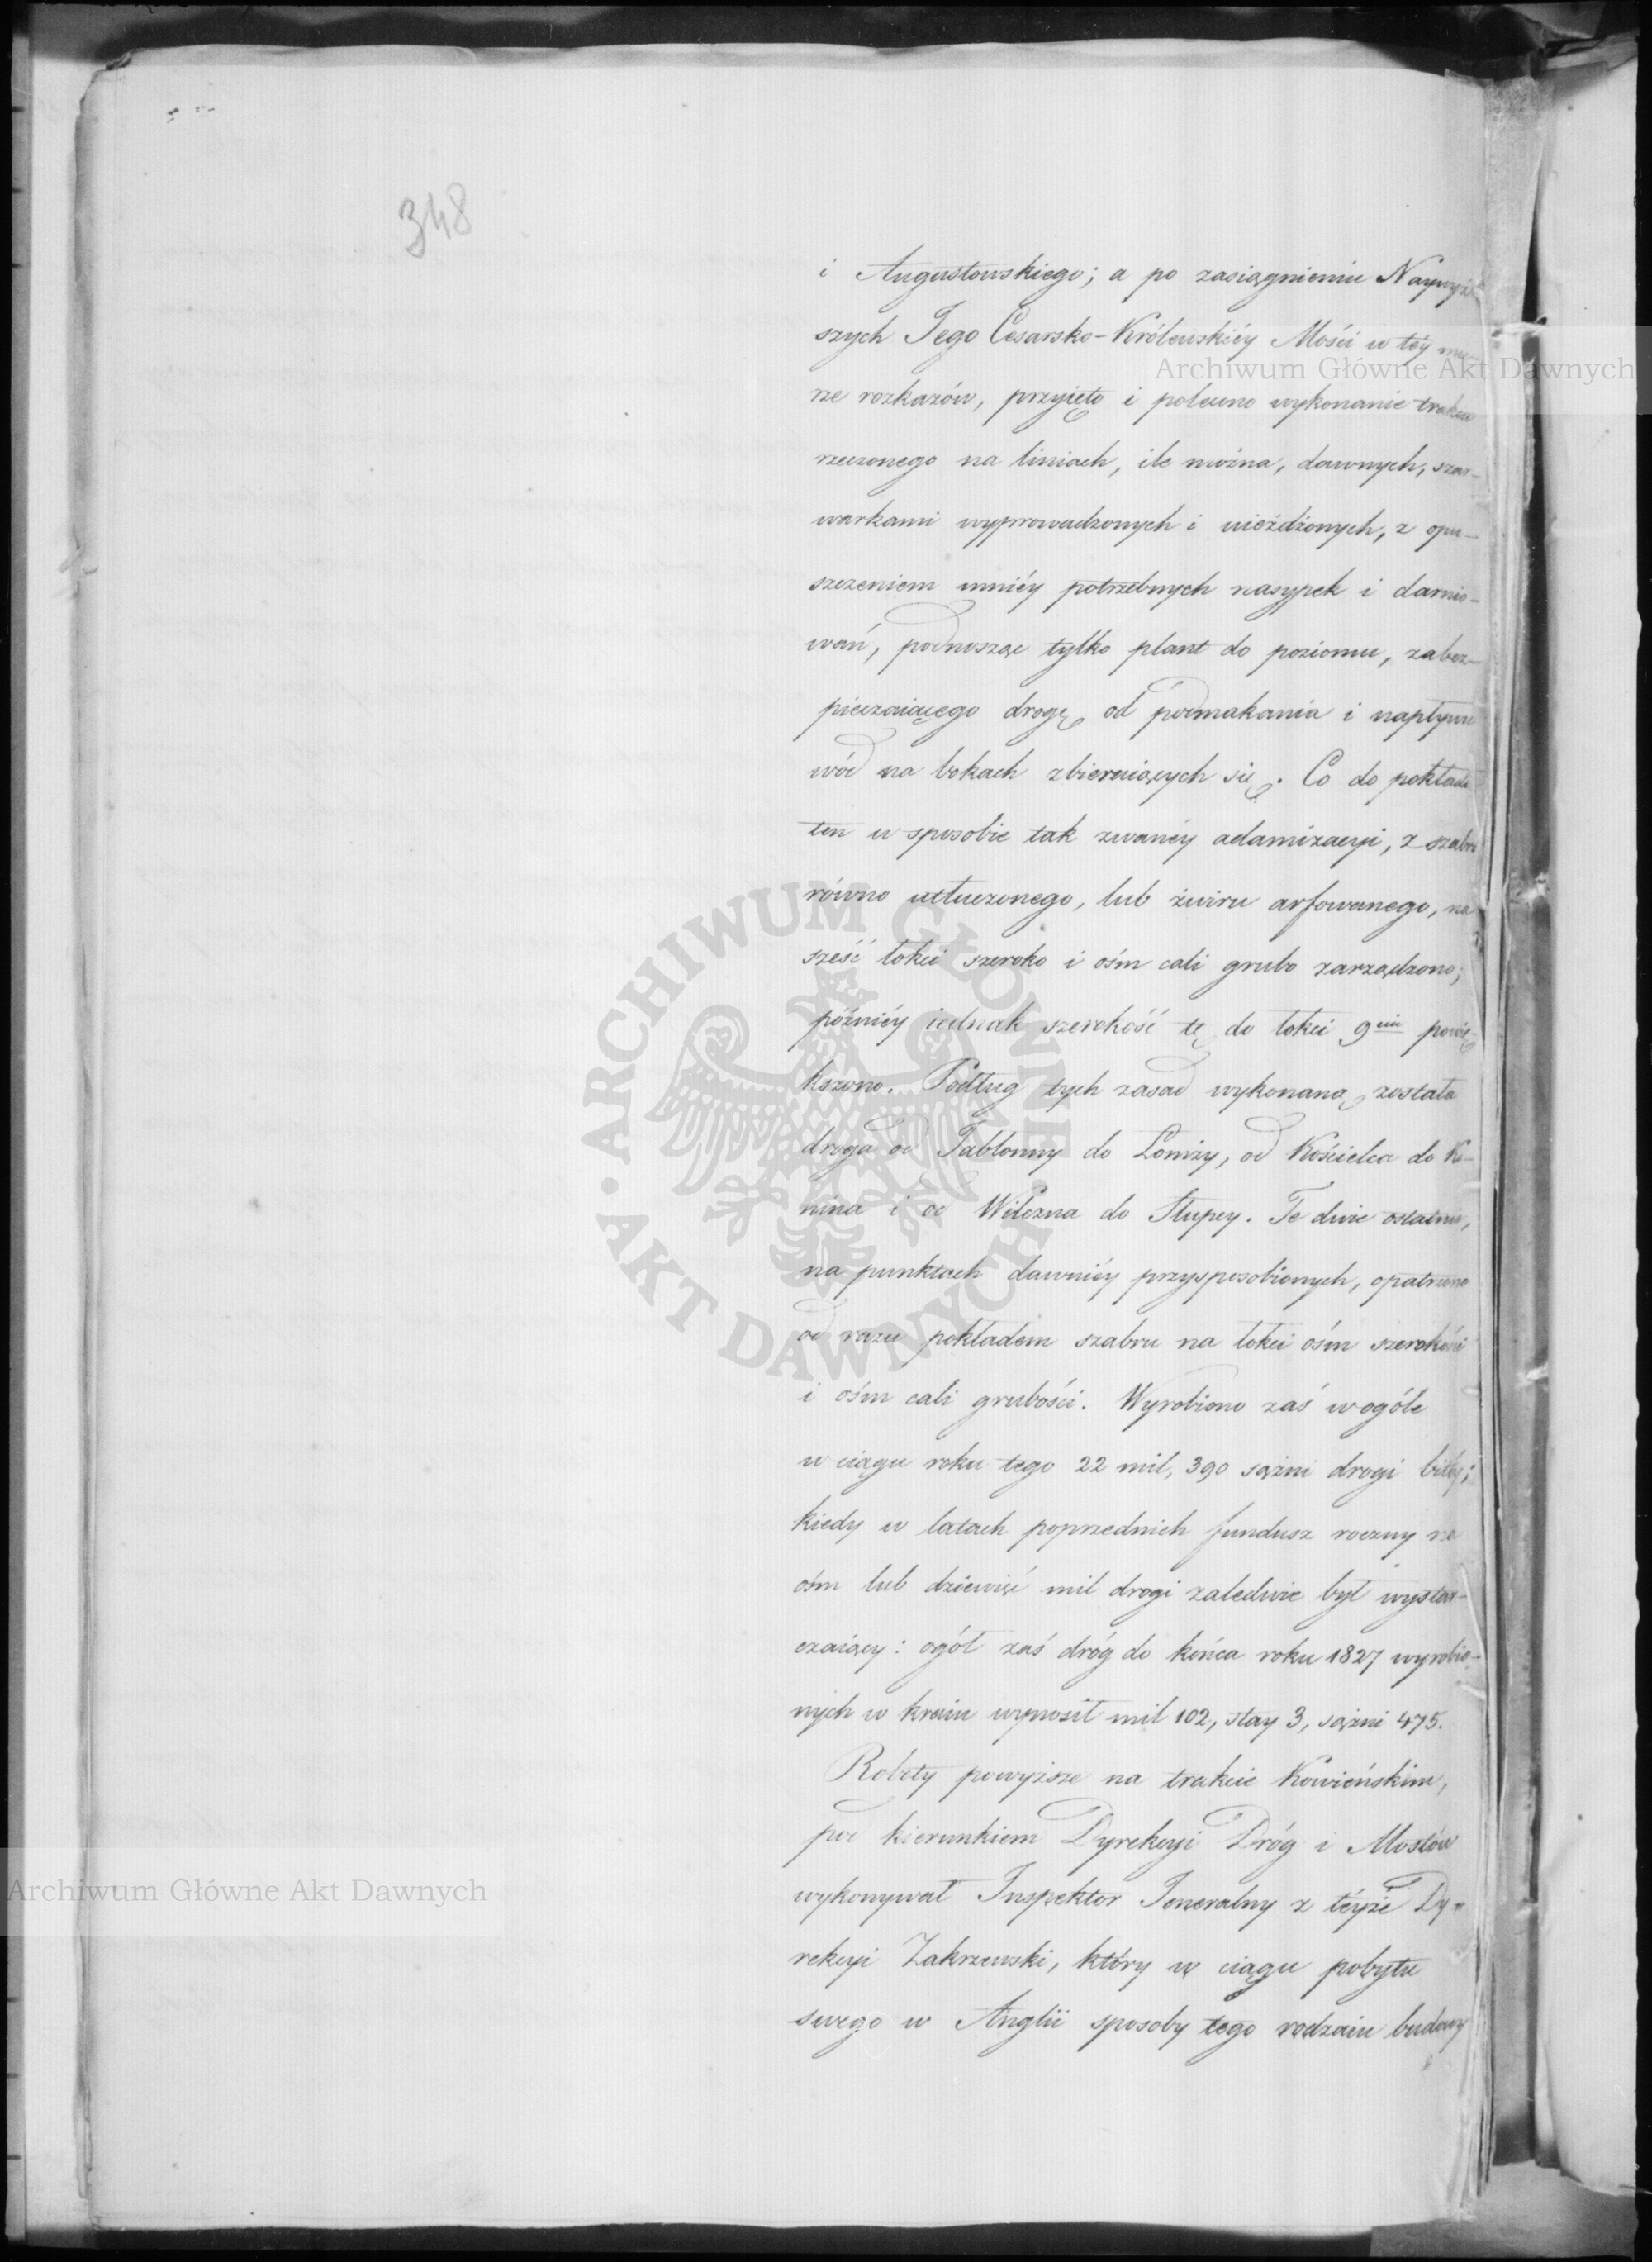 348
i Augustowskiego; a po zasiągnieniu Naywyż-
szych Jego Cesarsko-Królewskiéy Mości w téy mie-
rze rozkazów, przyięto i polecono wykonanie traktu
rzeczonego na liniach, ile można, dawnych, szar-
warkami wyprowadzonych i uieżdżonych, z opu-
szczeniem mniéy potrzebnych nasypek i darnio-
wań, podnosząc tylko plant do poziomu, zabez-
pieczaiącego drogę od podmakania i napływu
wód na bokach zbieraiących się. Co do pokładu
ten w sposobie tak zwanéy adamizacyi, z szabru
równo utłuczonego, lub żwiru arfowanego, na
sześć łokci szeroko i ośm cali grubo zarządzono;
późniéy iednak szerokość tę do łokci 9ciu powię-
kszono. Podług tych zasad wykonaną została
droga od Jabłonny do Łomży, od Kościelca do Ko-
nina i od Wilczna do Słupcy. Te dwie ostatnie,
na punktach dawniéy przysposobionych, opatrzono
od razu pokładem szabru na łokci ośm szerokości
i ośm cali grubości. Wyrobiono zaś w ogóle
w ciągu roku tego 22 mil, 390 sążni drogi bitéy;
kiedy w latach poprzednich fundusz roczny na
ośm lub dziewięć mil drogi zaledwie był wystar-
czaiący: ogół zaś dróg do końca roku 1827 wyrobio-
nych w kraiu wynosił mil 102, stay 3, sążni 475.
Roboty powyższe na trakcie Kowieńskim,
pod kierunkiem Dyrekcyi Dróg i Mostów
wykonywał Inspektor Jeneralny z téyże Dy-
rekcyi Zakrzewski, który w ciągu pobytu
swego w Anglii sposoby tego rodzaiu budowy
Archiwum Główne Akt Dawnych
Archiwum Główne Akt Dawnych
ARCHIWUM GŁÓWNE AKT DAWNYCH